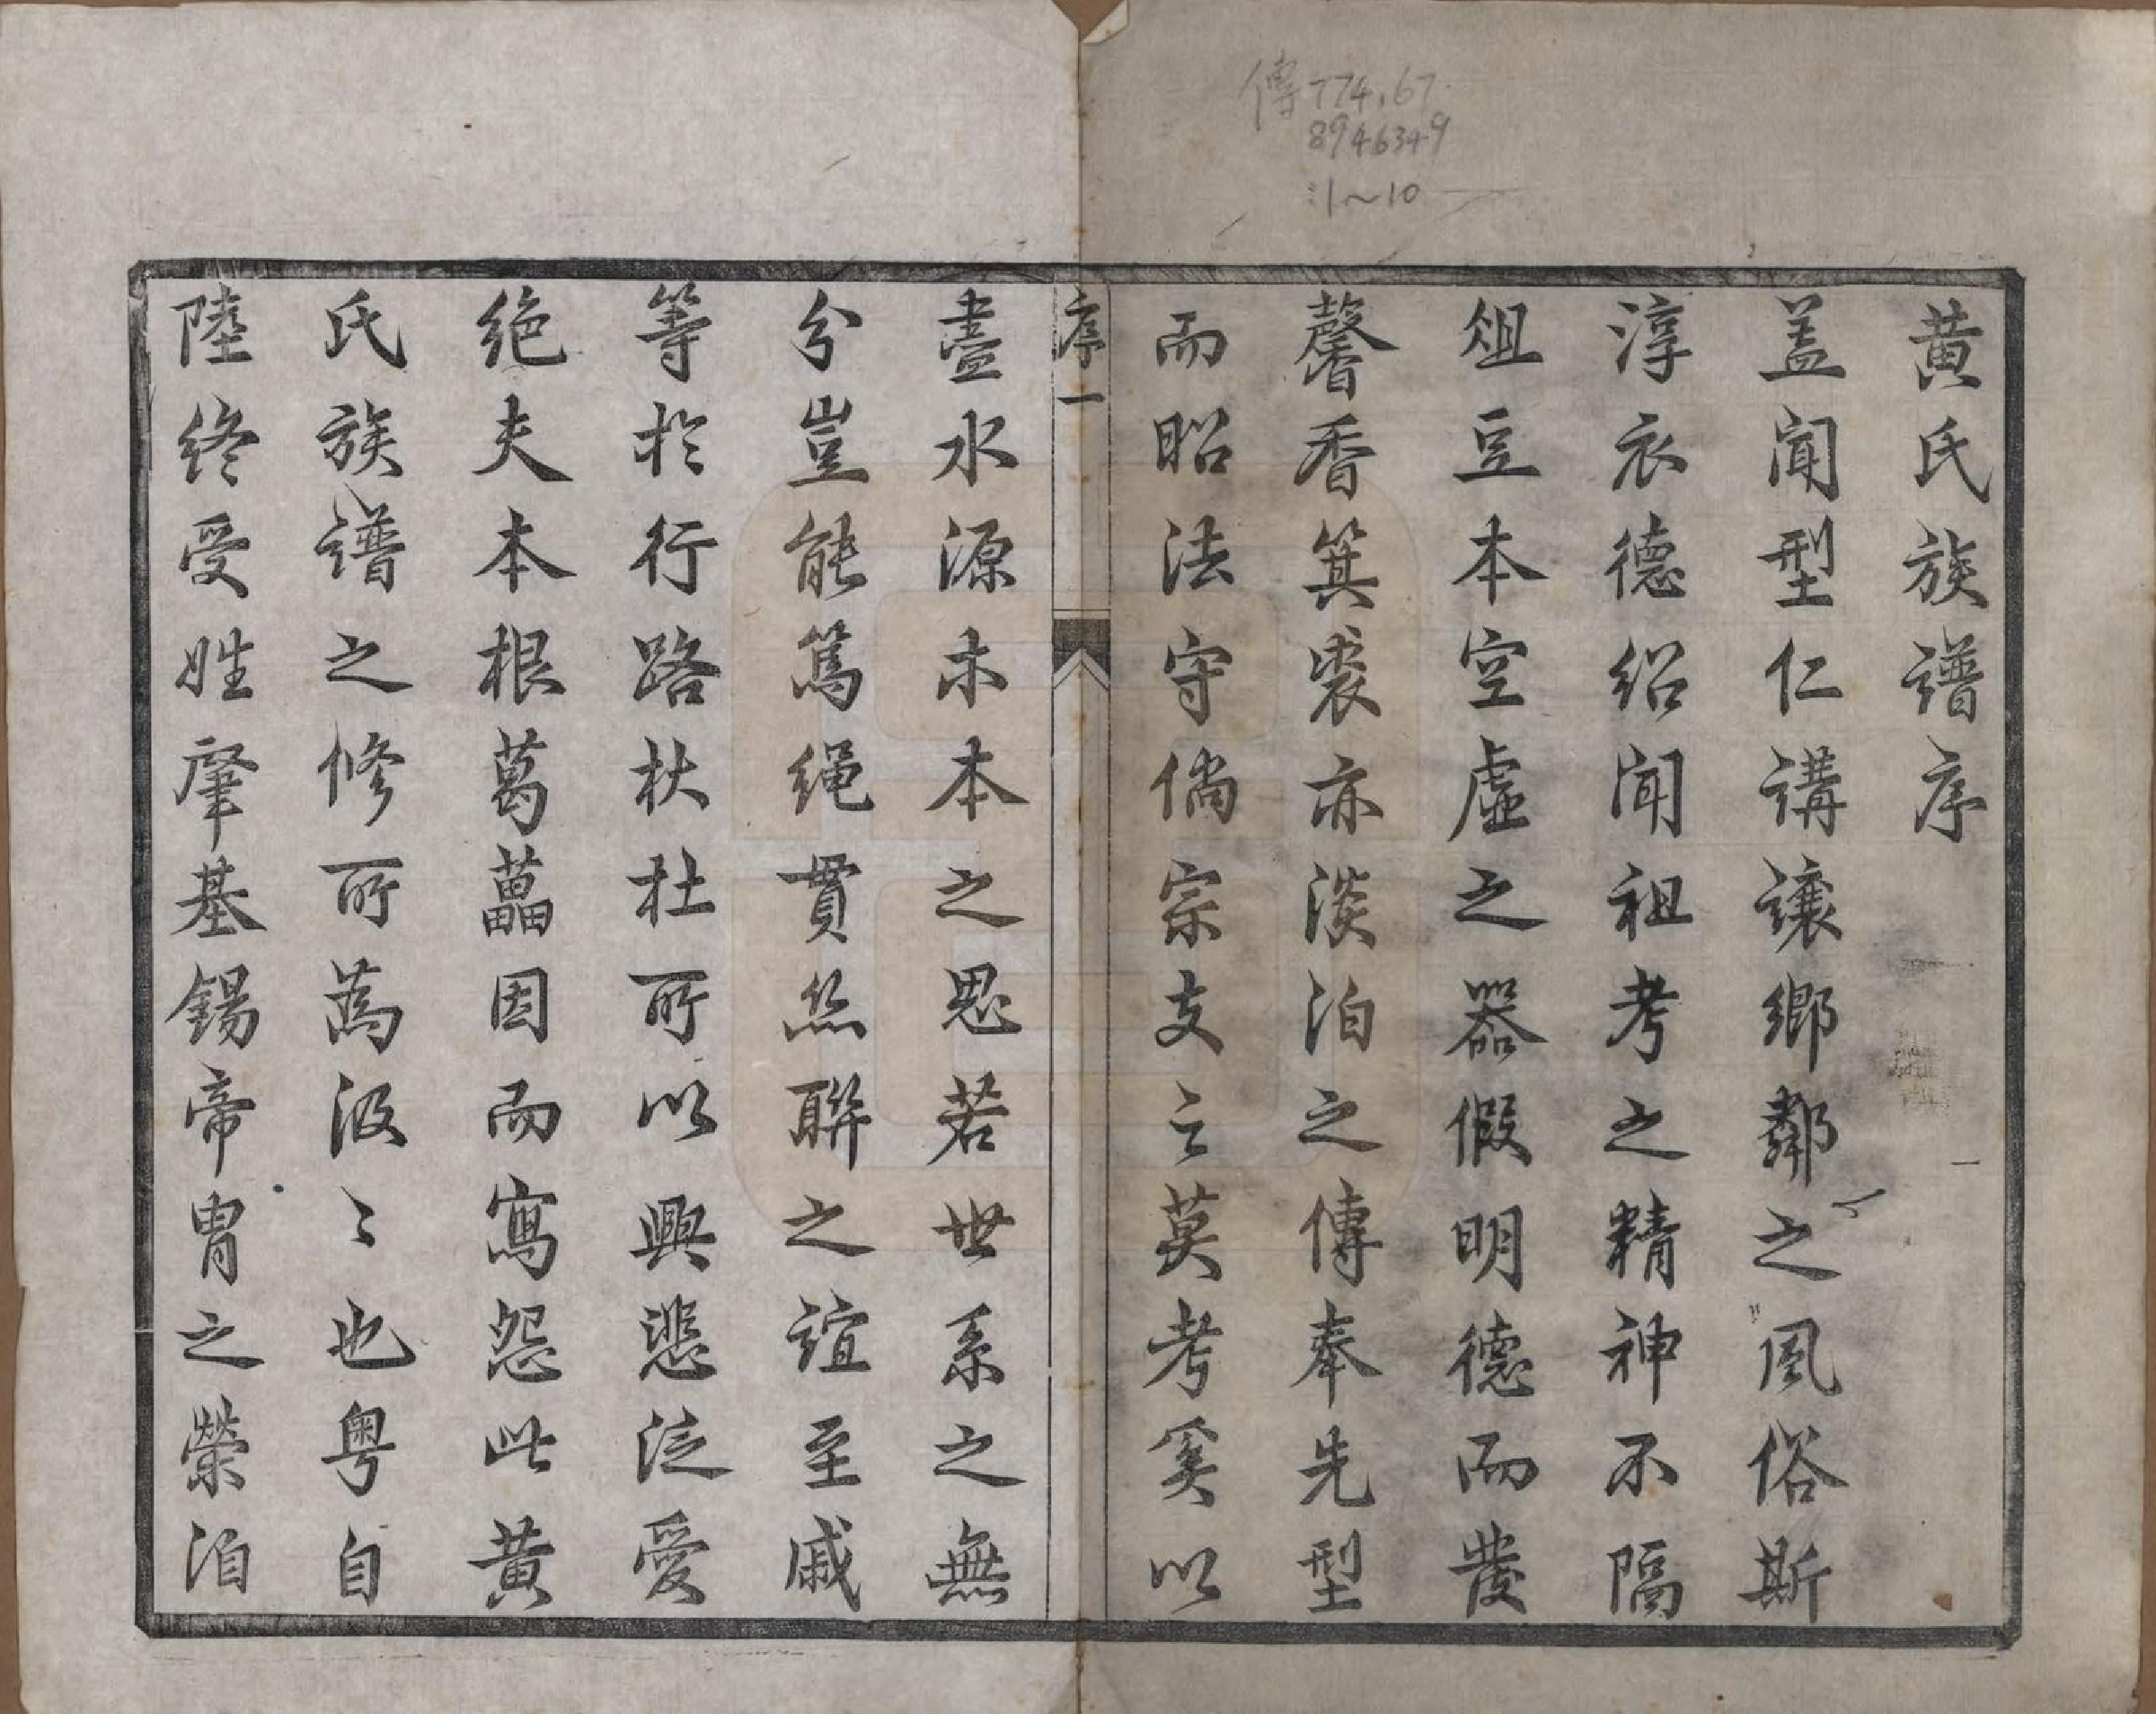 傳774.67
8946349
:1~10
黄氏族譜序
盖聞型仁講讓鄉鄰之風俗斯
淳衣德紹聞祖考之精神不隔
俎豆本空虛之器假明德而發
馨香箕裘亦淡泊之傳奉先型
而昭法守倘宗支之莫考奚以
序一
盡水源木本之思若世系之無
分豈能篤繩貫絲聯之誼至戚
等於行路杕杜所以興悲泛愛
絕夫本根葛藟因而寫怨此黃
氏族譜之修所為汲〻也粵自
陸終受姓肇基錫帝胄之榮洎